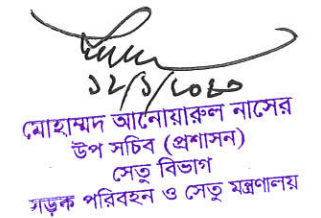 ১২/১/২০২০
মোহাম্মদ আনোয়ারুল নাসের
উপ সচিব (প্রশাসন)
সেতু বিভাগ
সড়ক পরিবহন ও সেতু মন্ত্রণালয়